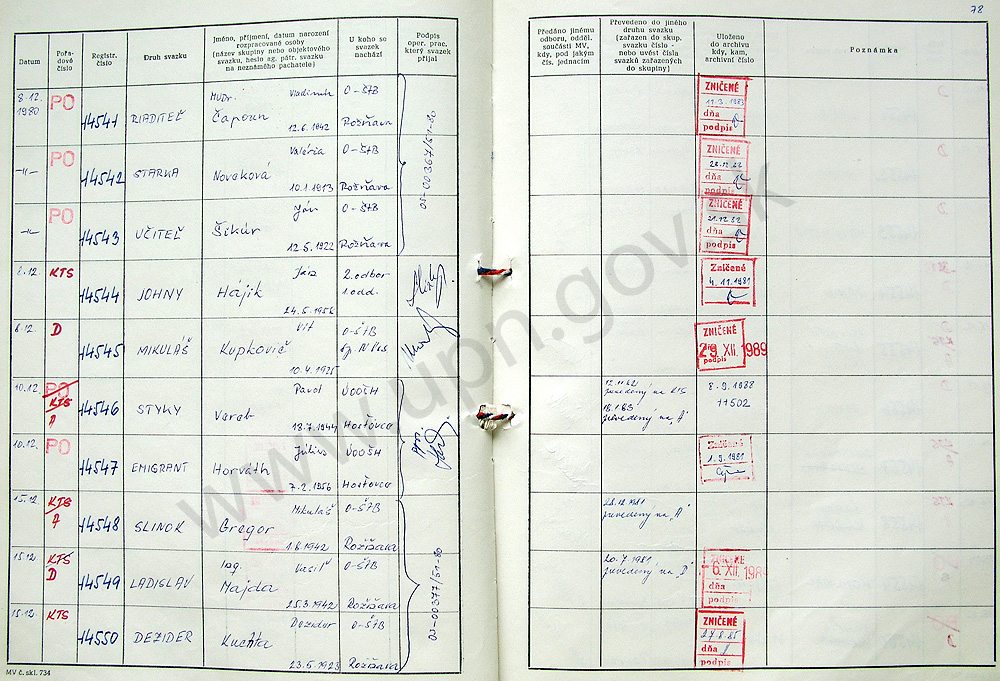 78
Datum
Pořa-
dové
číslo
Registr.
číslo
Druh svazku
Jméno, příjmení, datum narození
rozpracované osoby
(název skupiny nebo objektového
svazku, heslo ag. pátr. svazku
na neznámého pachatele)
U koho se
svazek
nachází
Podpis
oper. prac.
který svazek
přijal
Předáno jinému
odboru, odděl.
součásti MV,
kdy, pod jakým
čís. jednacím
Převedeno do jiného
druhu svazku
(zařazen do skup.
svazku číslo -
nebo uvést čísla
svazků zařazených
do skupiny)
Uloženo
do archivu
kdy, kam,
archivní číslo
Poznámka
8.12. 1980 PO 14541 RIADITEĽ MUDr. Vladimír Čapoun 12.6.1942 O-ŠtB Rožňava
ZNIČENÉ 11.3.1983 dňa podpis
-"- PO 14542 STARKA Valéria Nováková 10.1.1913 O-ŠtB Rožňava
ZNIČENÉ dňa podpis
05-00367/51-80
-"- PO 14543 UČITEĽ Ján Šikúr 12.5.1922 O-ŠtB Rožňava
ZNIČENÉ 21.12.82 dňa podpis
8.12. KTS 14544 JOHNY Hájik 24.5.1956 2. odbor 1. odd.
Zničené 4.11.1981
6.12. D 14545 MIKULÁŠ Vít Kupkovič 10.4.1925 O-ŠtB
ZNIČENÉ 29. XII. 1989 podpis
10.12. PO KTS A 14546 STYKY Pavol 18.7.1944
prevedený na KTS
18.1.83 prevedený na „A"
8.9.1988
11502
10.12. PO 14547 EMIGRANT Július Horváth 7.2.1956
Zničené 1.9.1981
15.12. KTS A 14548 SLINOK Mikuláš Gregor 1.6.1942 O-ŠtB Rožňava
prevedený na „A"
15.12. KTS D 14549 LADISLAV Ing. Vasiľ Majda 25.3.1942 O-ŠtB Rožňava
20.7.1981 prevedený na „D"
dňa podpis
15.12. KTS 14550 DEZIDER Dezider Kuchta 23.5.1923 O-ŠtB Rožňava
ZNIČENÉ 27.8.85 dňa podpis
05-00377/51-80
MV č. skl. 734
www.upn.gov.sk